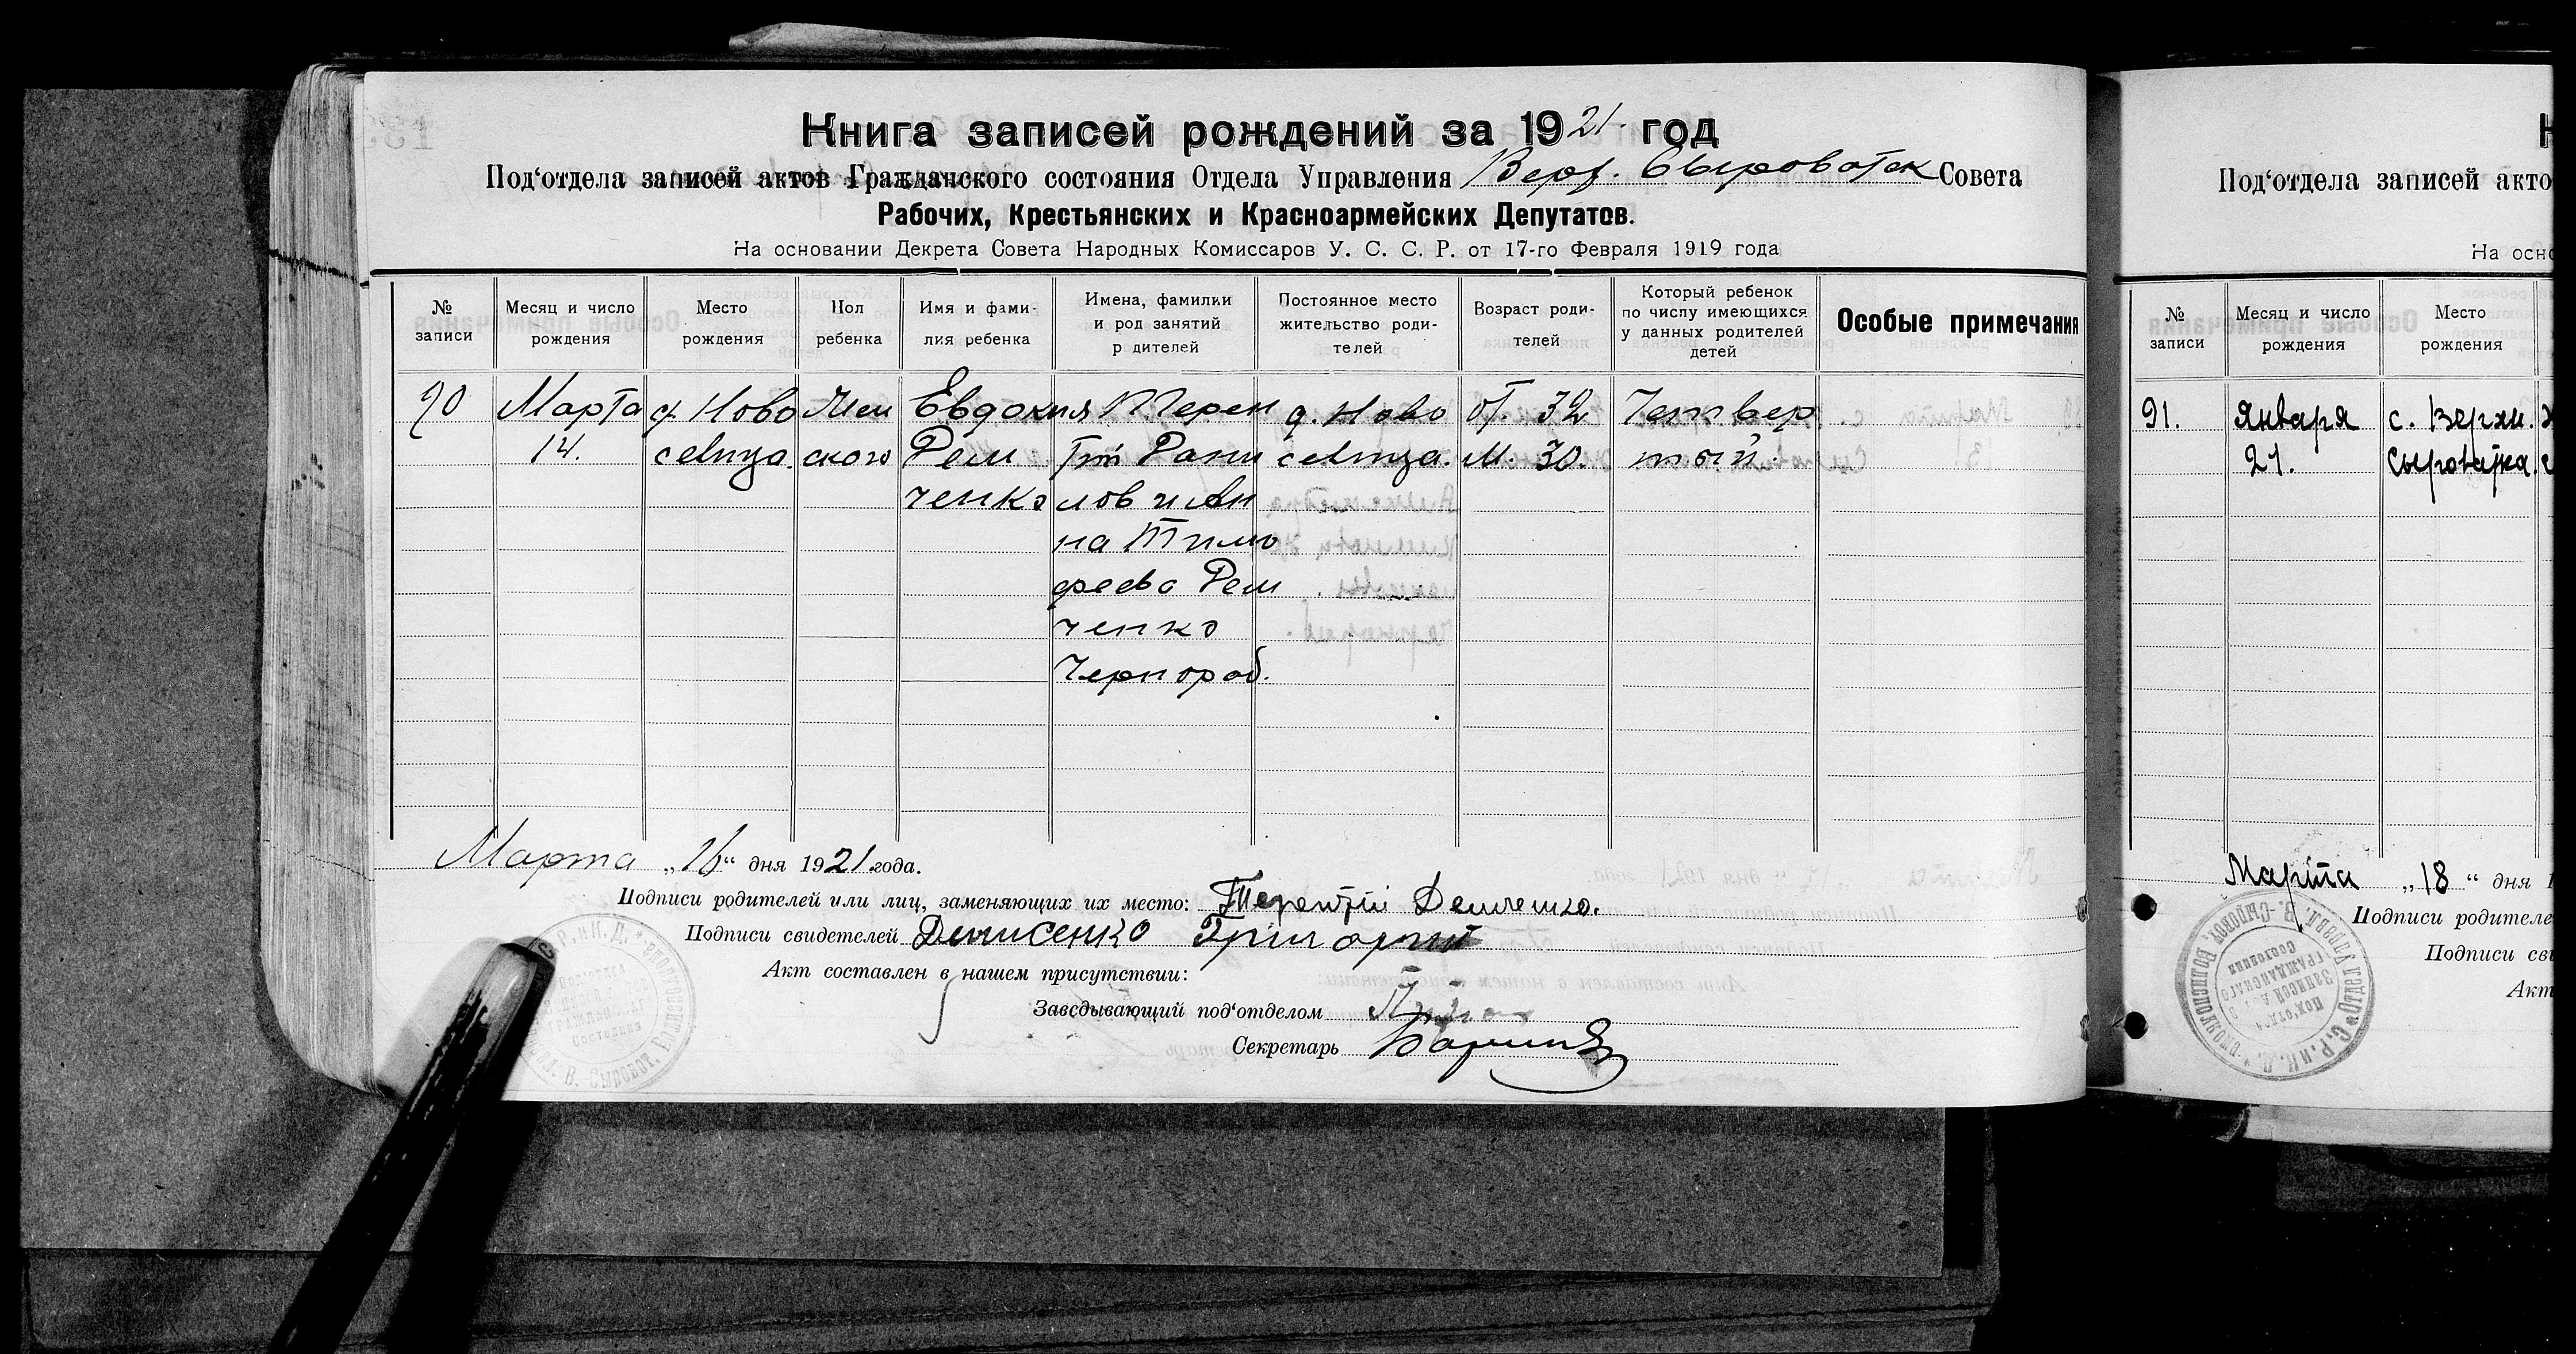 Книга записей рождений за 1921. год
Под'отдела записей актов Гражданского состояния Отдела Управления Верх. Сыроватск Совета
Рабочих, Крестьянских и Красноармейских Депутатов.
На основании Декрета Совета Народных Комиссаров У. С. С. Р. от 17-го Февраля 1919 года
№ записи
Месяц и число рождения
Место рождения
Пол ребенка
Имя и фамилия ребенка
Имена, фамилии и род занятий р дителей
Постоянное место жительство родителей
Возраст родителей
Который ребенок по числу имеющихся у данных родителей детей
Особые примечания
90
Марта
14.
д. Ново
севица.
Жен
ского
Евдокия
Дем
ченко
Терен
тій Дани
лов и Ан
на Тимо
феева Дем
ченко
Чернораб.
д. Ново
севица.
От. 32
М. 30.
Четвер
тый.
Марта „16“ дня 1921 года.
Подписи родителей или лиц, заменяющих их место: Терентій Демченко.
Подписи свидетелей Денисенко Григорий
Акт составлен в нашем присутствии:
Заведывающий под'отделом
Секретарь
Под'отдела записей акто
На осно
№ записи
Месяц и число рождения
Место рождения
91.
Января
21.
с. Верхн.
Сыроватка.
Марта „18“ дня 1
Подписи родителе
Подписи сви
Акт